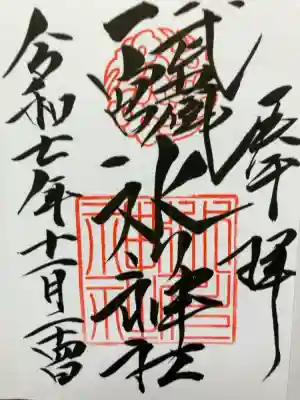 奉拝
武蔵
一宮
氷川神社
令和七年十一月二十四日